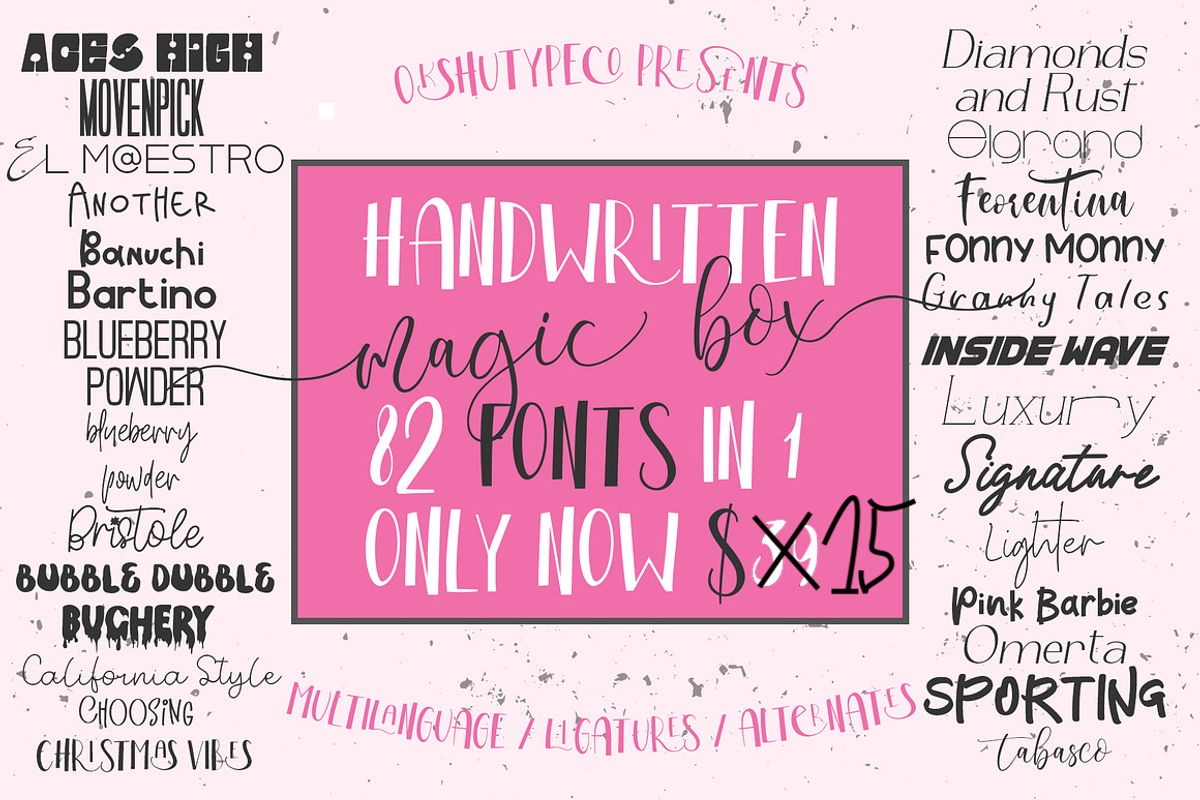 ACES HIGH
MOVENPICK
EL M@ESTRO
ANOTHER
Banuchi
Bartino
BLUEBERRY
POWDER
blueberry
powder
Bristole
BUBBLE DUBBLE
BUGHERY
California Style
CHOOSING
CHRISTMAS VIBES
OKSHUTYPECO PRESENTS
HANDWRITTEN
magic box
82 FONTS IN 1
ONLY NOW $39 15
MULTILANGUAGE / LIGATURES / ALTERNATES
Diamonds
and Rust
Elgrand
Feorentina
FONNY MONNY
Granny Tales
INSIDE WAVE
Luxury
Signature
Lighter
Pink Barbie
Omerta
SPORTING
tabasco